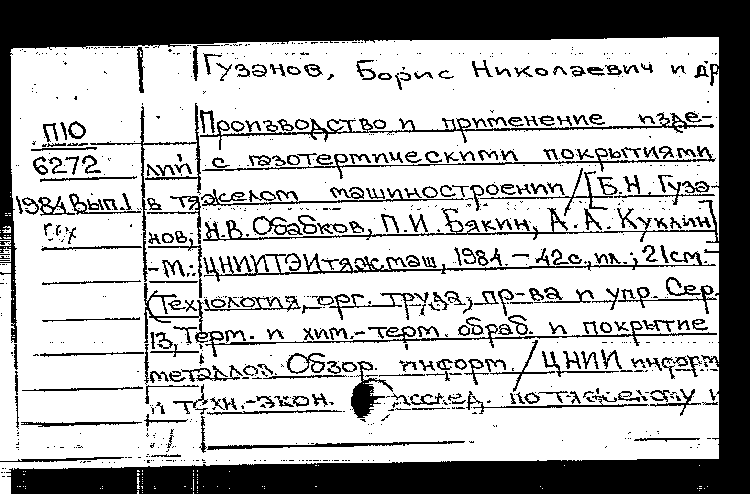 Гузанов, Борис Николаевич и др
П10
6272
1984 Вып.1
сох
Производство и применение изде-
лий с газотермическими покрытиями
в тяжелом машиностроении / [Б.Н. Гуза-
нов, Н.В. Обабков, П.И. Бякин, А.А. Куклин]
-М.: ЦНИИТЭИтяжмаш, 1984. - 42с., ил.; 21см.-
(Технология, орг. труда, пр-ва и упр. Сер.
13, Терм. и хим.-терм. обраб. и покрытие
металлов. Обзор. информ. / ЦНИИ информ
и техн.-экон. исслед. по тяжелому и